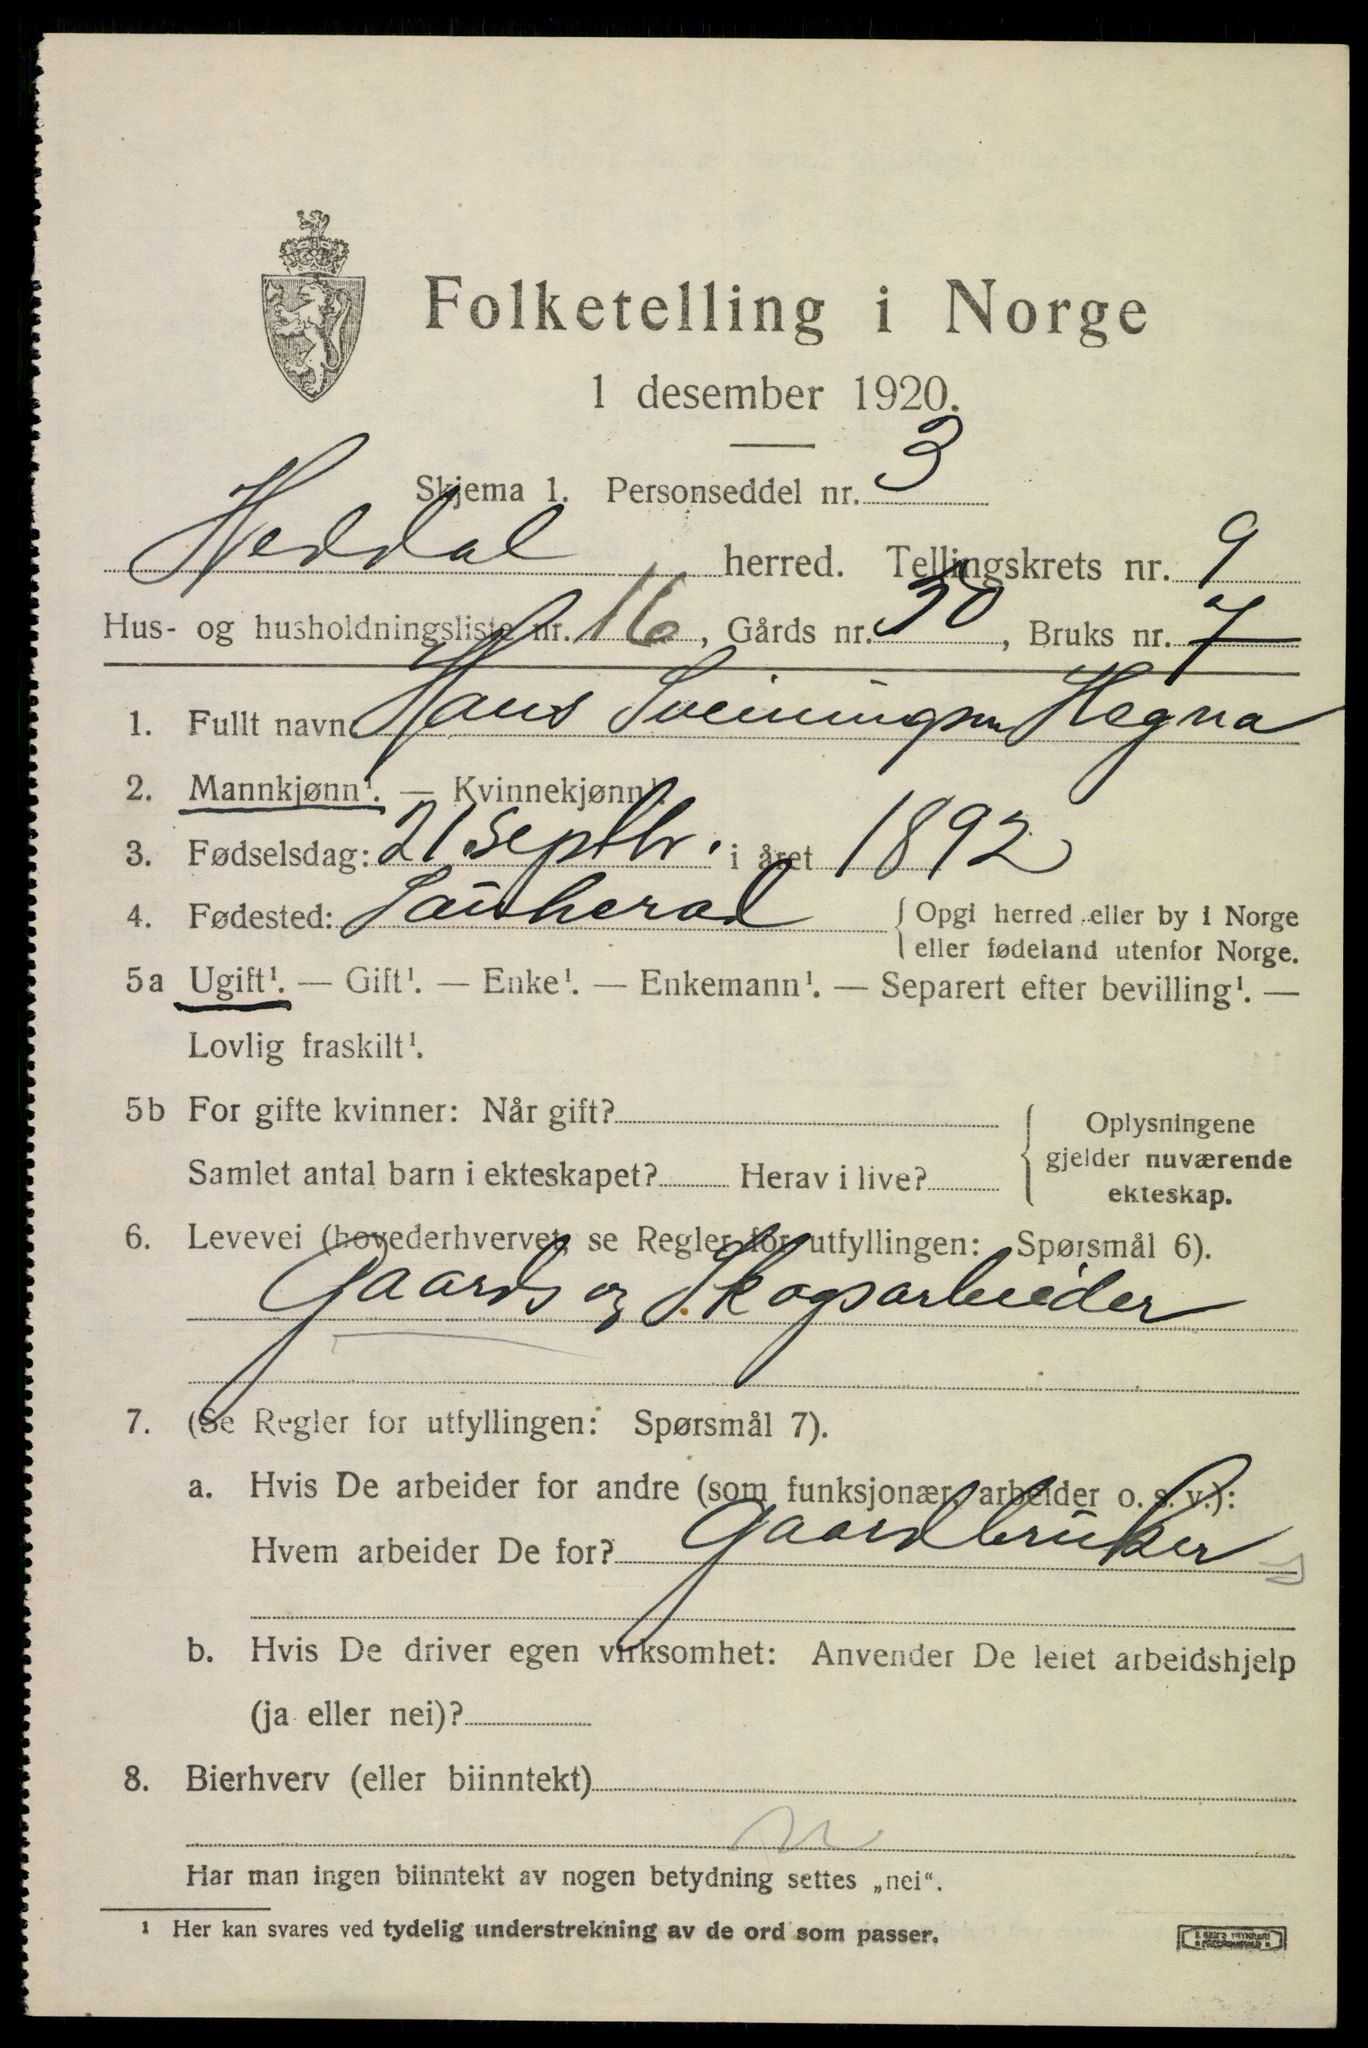 Folketelling i Norge
1 desember 1920.
Skjema 1. Personseddel nr. 3
Heddal herred. Tellingskrets nr. 9
Hus- og husholdningsliste nr. 16, Gårds nr. 30, Bruks nr. 7
1. Fullt navn Hans Sveinungsen Hegna
2. Mannkjønn¹. — Kvinnekjønn¹.
3. Fødselsdag: 21 Septbr. i året 1892
4. Fødested: Sauherad { Opgi herred eller by i Norge
eller fødeland utenfor Norge.
5a Ugift¹. — Gift¹. — Enke¹. — Enkemann¹. — Separert efter bevilling¹. —
Lovlig fraskilt¹.
5b For gifte kvinner: Når gift? { Oplysningene
gjelder nuværende
Samlet antal barn i ekteskapet? Herav i live? ekteskap.
6. Levevei (hovederhvervet, se Regler for utfyllingen: Spørsmål 6).
Gaards og Skogsarbeider
7. (Se Regler for utfyllingen: Spørsmål 7).
a. Hvis De arbeider for andre (som funksjonær, arbeider o. s. v.):
Hvem arbeider De for? Gaardbruker
b. Hvis De driver egen virksomhet: Anvender De leiet arbeidshjelp
(ja eller nei)?
8. Bierhverv (eller biinntekt)
Har man ingen biinntekt av nogen betydning settes „nei“.
¹ Her kan svares ved tydelig understrekning av de ord som passer.